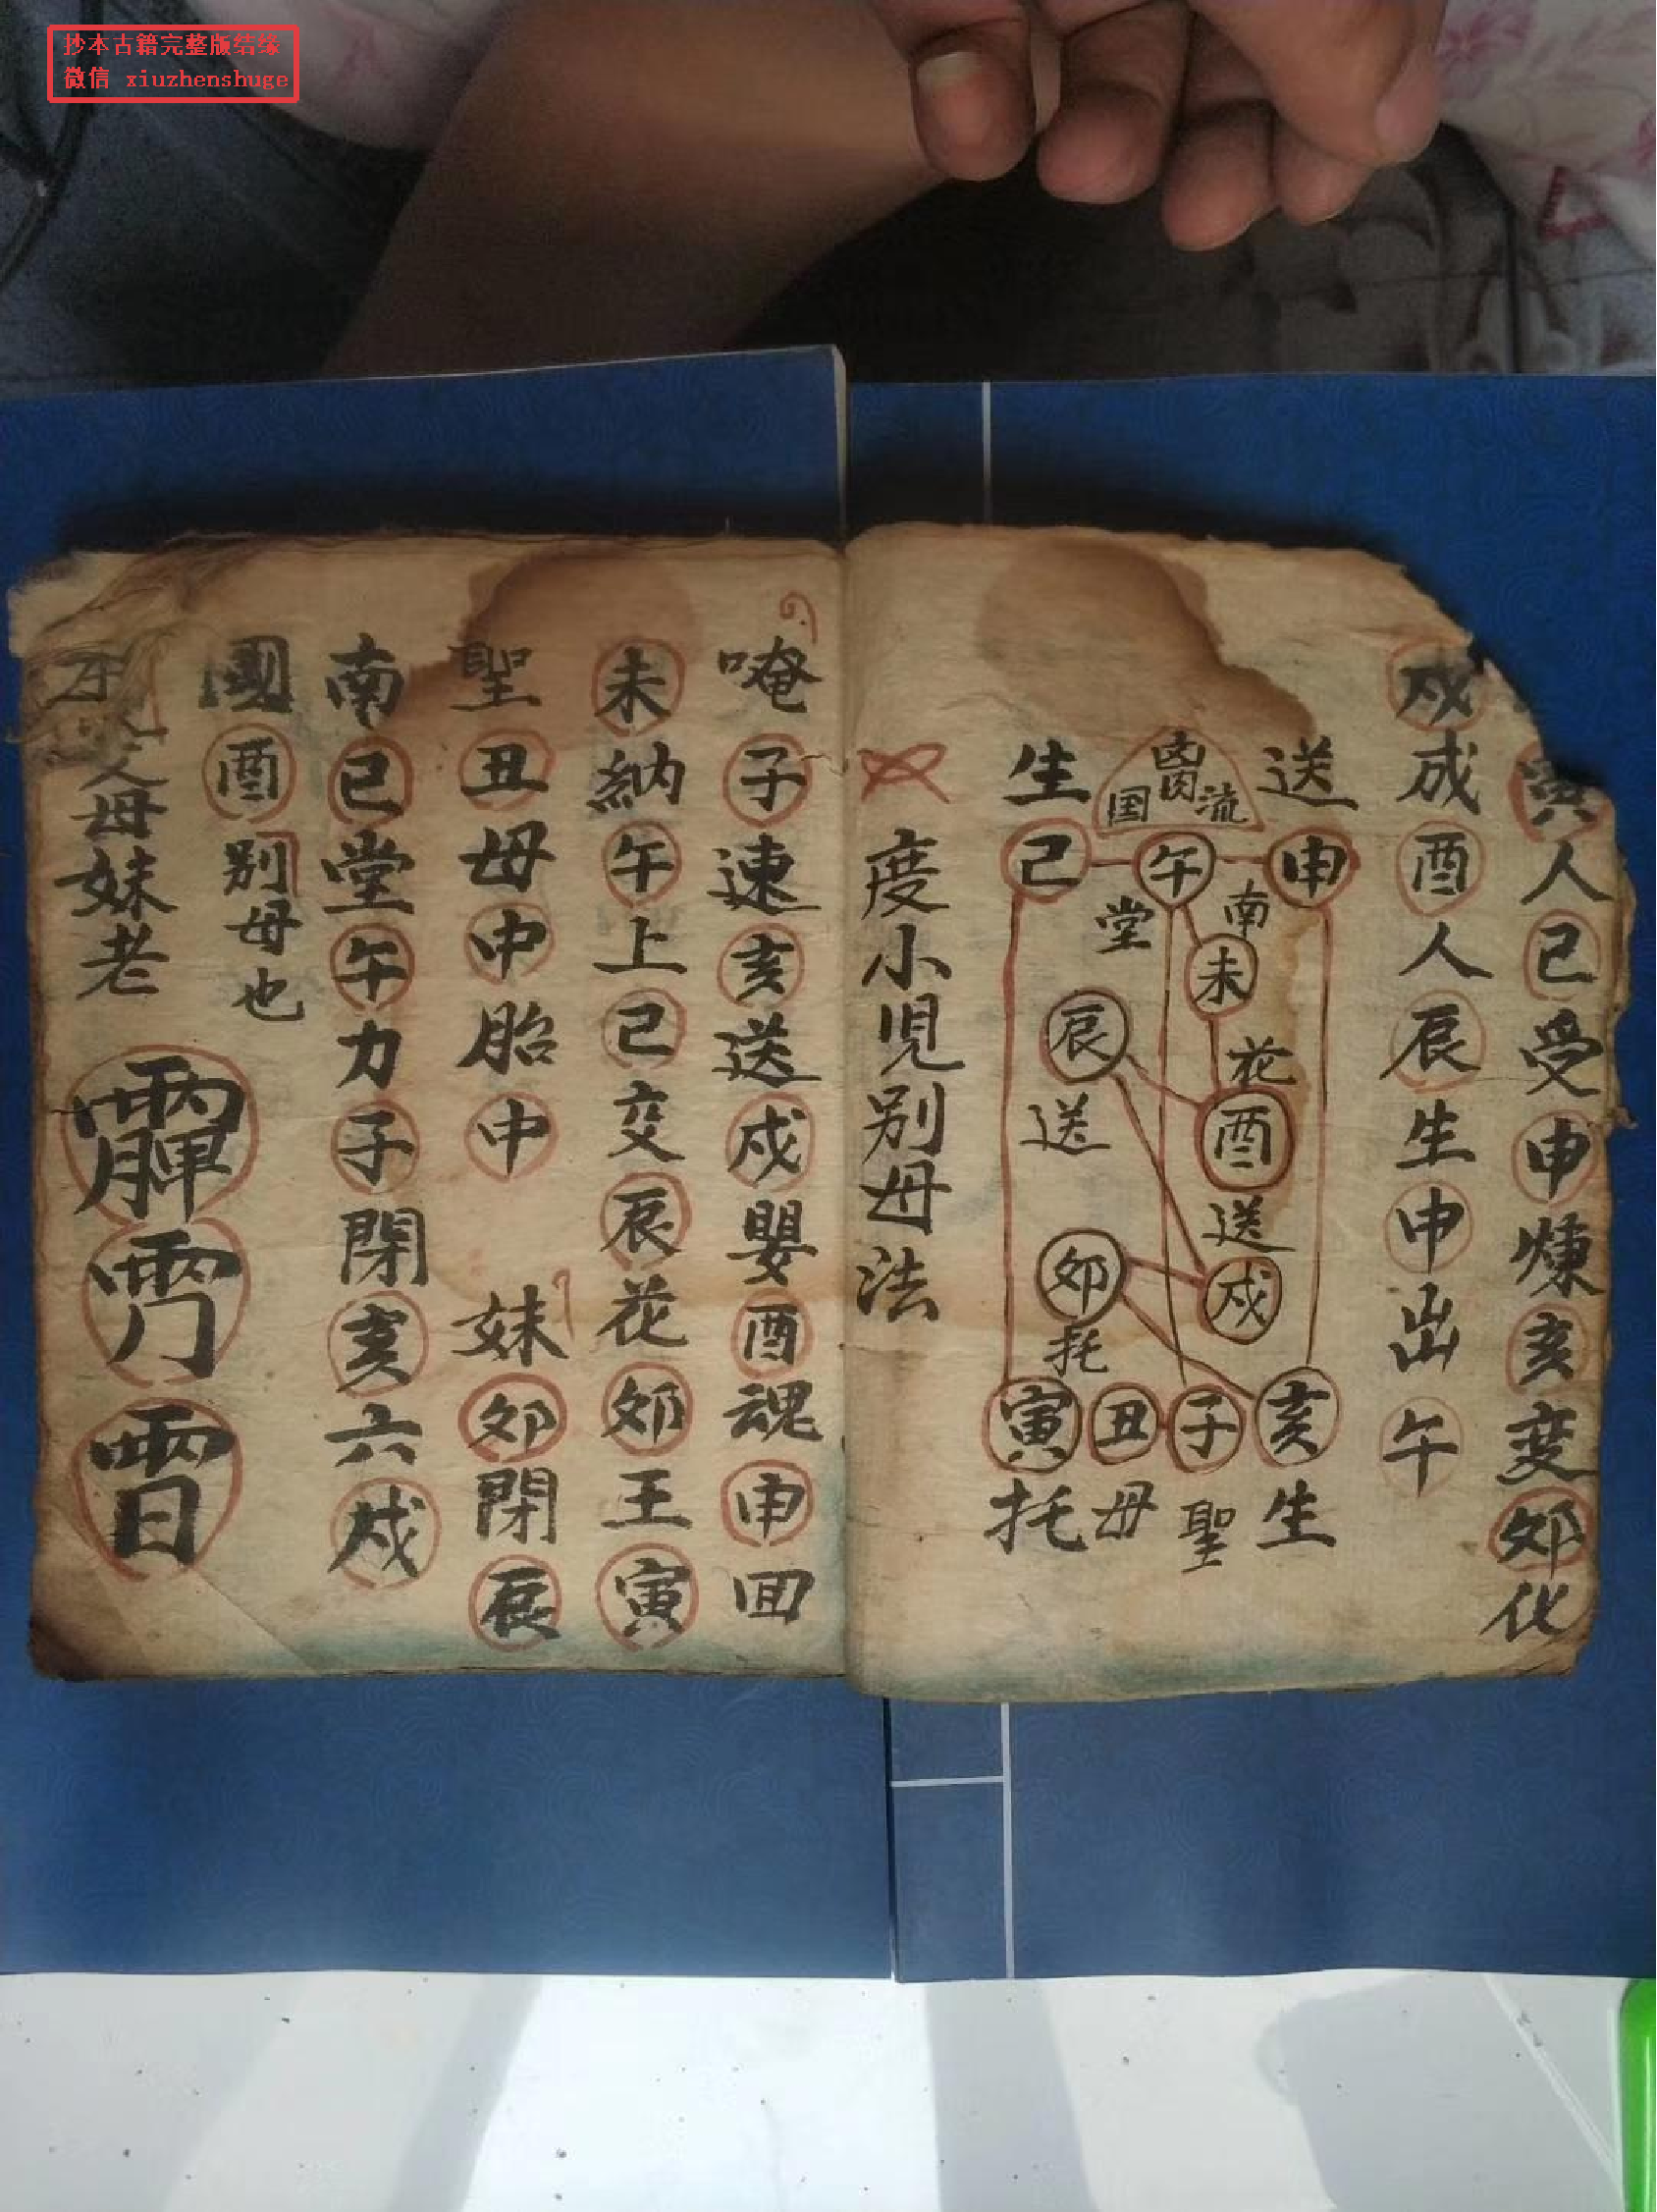 抄本古籍完整版结缘
微信 xiuzhenshuge
寅人巳受申煉亥变卯化
戍成酉人辰生申出午
送 生
流 国
申 午 巳
南 堂
未
辰
花
酉
送
送
戍
卯
托
亥 子 丑 寅
生 聖 母 托
度小児别母法
唵子速亥送戍嬰酉魂申回
未納午上巳交辰花卯王寅
聖丑母申胎中 妹卯閉辰
南巳堂午力子閉亥六戍
國酉别母也
父母妹老